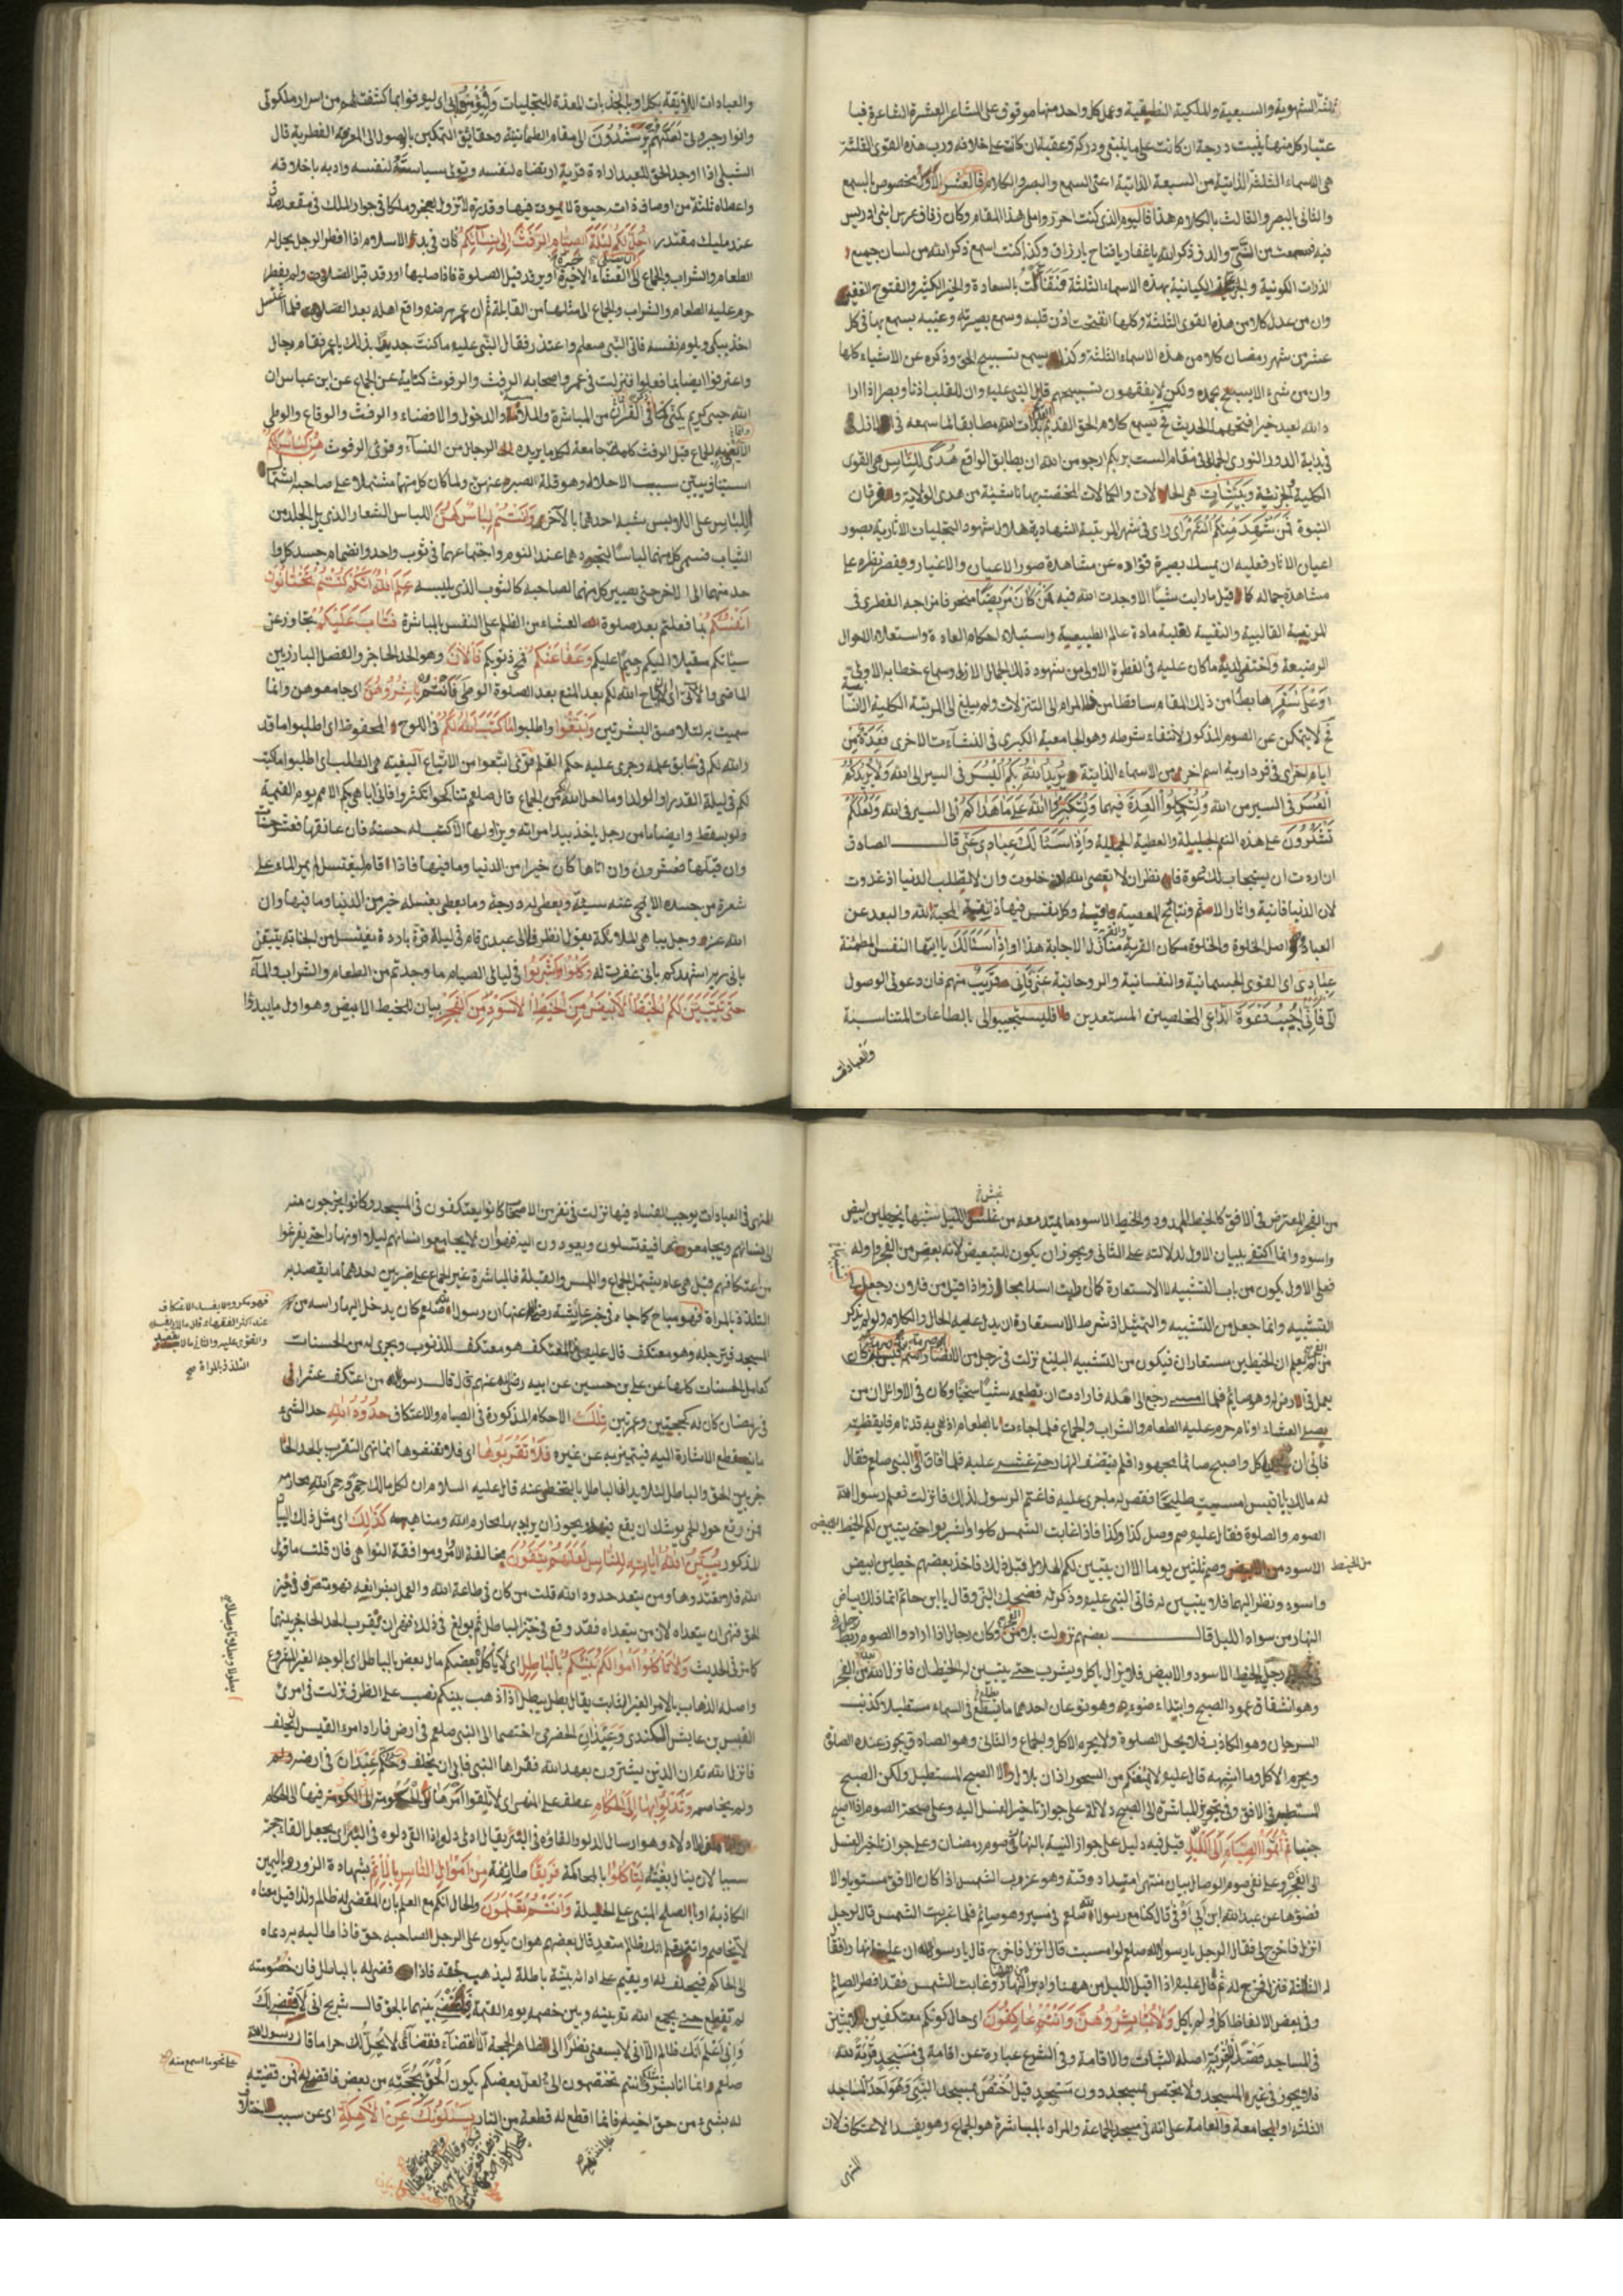 ثلثة الشهوية والسبعية والملكية النطيقية وعمل كل واحد منها موقوف على المشاعر العشرة الشاعرة فبا
عتبار كل منها يثبت درجة ان كانت على ما ينبغى ودركة وعقبة ان كانت على خلافه ورب هذه القوى الثلثة
هى الاسماء الثلثة الذاتية من السبعة الذاتية اعنى السمع والبصر والكلام فالعشر الاول مخصوص بالسمع
والثانى بالبصر والثالث بالكلام هذا فاليوم الذى كنت احرر واملى هذا المقام وكان زفاف عرس ابنى ادريس
فيه فسمعت من الدف ذكر الله يا غفار يا فتاح يا رزاق وكذا كنت اسمع ذكر الله من لسان جميع
الذرات الكونية الكيانية بهذه الاسماء الثلثة فتفألت بالسعادة والخير الكثير والفتوح
وان من عدل كلا من هذه القوى الثلثة وكلها انفتحت اذن قلبه وسمع بصيرته وعينه يسمع بها فى كل
عشر من شهر رمضان كلا من هذه الاسماء الثلثة وكذا يسمع تسبيح الحق وذكره عن الاشياء كلها
وان من شئ الا يسبح بحمده ولكن لا يفقهون تسبيحهم قال النبى عليه وان للقلب اذنا وبصرا اذا ارا
د الله بعبد خيرا فتحهما الحديث يسمع كلام الحق القديم مطابقا لما سمعه فى
فى بداية الدور النورى الجمالى فى مقام الست بربكم ارجو من الله ان يطابق الواقع هُدًى لِلنَّاسِ هى القوى
الكلية الجزئية وَبَيِّنَاتٍ هى الحالات والكمالات المختصة بها ناشئة من هدى الولاية وفرقان
النبوة فَمَنْ شَهِدَ مِنْكُمُ الشَّهْرَ اى راى فى شهر المرتبة الشهادية هلال شهود التجليات الآثارية بصور
اعيان الآثار فعليه ان يمسك بصيرة فؤاده عن مشاهدة صور الاعيان والاغيار ويقصر نظره على
مشاهدة جماله كما قيل ما رايت شيئا الا وجدت الله فيه فَمَنْ كَانَ مَرِيضًا منحرفا مزاجه الفطرى فى
المرتبة القالبية والنفسية لغلبة مادة عالم الطبيعية واستيلاء احكام العادة واستعلاء الاحوال
الرضيعة واختفى لديه ما كان عليه فى الفطرة الاولى من شهود ذلك الجمال الازلى وسماع خطابه الاولى
اَوْ عَلَى سَفَرٍ هابطا من ذلك المقام ساقطا من المرام الى التنزلات ولم يبلغ الى المرتبة الكلية
لا يتمكن عن الصوم المذكور لانتفاء شرطه وهو الجامعية الكبرى فى النشآت الاخرى فَعِدَّةٌ مِنْ
ايام اخر اى فى قود ارية اسم اخر من الاسماء الذاتية يُرِيدُ اللهُ بِكُمُ الْيُسْرَ فى السير الى الله وَلَا يُرِيدُ بِكُمُ
الْعُسْرَ فى السير من الله وَلِتُكْمِلُوا الْعِدَّةَ فيهما وَلِتُكَبِّرُوا اللهَ عَلَى مَا هَدَاكُمْ الى السير فى الله وَلَعَلَّكُمْ
تَشْكُرُونَ على هذه النعم الجليلة والعطية الجميلة وَاِذَا سَأَلَكَ عِبَادِى عَنِّى قال الصادق
ان اردت ان يستجاب لك دعوة فانظر ان لا تعصى الله ان خلوت وان لا تطلب الدنيا اذ غدوت
لان الدنيا فانية وآثار الاثم ونتائج المعصية باقية وكل نفس فيها ذائقة المحبة لله والبعد عن
العبادة اصل الخلوة والخلوة مكان القربة الاجابة هذا او اذا سَأَلَكَ يا ايتها النفس المطمئنة
عِبَادِى اى القوى الجسمانية والنفسانية والروحانية عَنِّى فَاِنِّى قَرِيبٌ منهم فان دعونى الوصول
الىّ فَاِنِّى اُجِيبُ دَعْوَةَ الدَّاعِى المخلصين المستعدين فليستجيبوا لى بالطاعات المتناسبة
والعبادات
والعبادات اللايقة بكل او بالجذبات المعدة للتجليات وَلْيُؤْمِنُوا بِى اى ليوقنوا بما كشفت لهم من اسرار ملكوتى
وانوار جبروتى لَعَلَّهُمْ يَرْشُدُونَ الى مقام الطمانينة وحقائق التمكين بالوصول الى المعرفة الفطرية قال
الشبلى اذا اوجد الحق للعبد ارادة قربة ارتضاه لنفسه ويتولى سياسته لنفسه وادبه باخلاقه
واعطاه ثلثة من اوصاف ذاته حيوة لا يموت فيها وقدرة لا تزول بالعجز وملكا فى جوار الملك فى مقعد صدق
عند مليك مقتدر اُحِلَّ لَكُمْ لَيْلَةَ الصِّيَامِ الرَّفَثُ اِلَى نِسَائِكُمْ كان فى بدء الاسلام اذا افطر الرجل يحل له
الطعام والشراب والجماع الى العشاء الاخيرة او يرقد قبل الصلوة فاذا صليها او رقد قبل الصلوة ولم يفطر
حرم عليه الطعام والشراب والجماع الى مثلها من القابلة ثم ان عمر رضه واقع اهله بعد الصلوة فلما اغتسل
اخذ يبكى ويلوم نفسه فاتى النبى صلعم واعتذر فقال النبى عليه ما كنت جديرا بذلك يا عمر فقام رجال
واعترفوا ايضا بما فعلوا فنزلت فى عمر واصحابه الرفث والرفوث كناية عن الجماع عن ابن عباس ان
الله حيى كريم يكنى كما فى القرآن من المباشرة والملامسة والدخول والافضاء والرفث والوقاع والوطى
للجماع قيل الرفث كلمة جامعة لكل ما يريده الرجال من النساء وقرئ الرفوث هُنَّ لِبَاسٌ لَكُمْ
استيناف يبين سبب الاحلال وهو قلة الصبر عنهن ولما كان كل منهما مشتملا على صاحبه اشتمال
اللباس على اللابس شبه احدهما بالآخر وَاَنْتُمْ لِبَاسٌ لَهُنَّ اللباس الشعار الذى يلى الجلد من
الثياب فسمى كل منهما لباسا لتجردهما عند النوم واجتماعهما فى ثوب واحد وانضمام جسد كل وا
حد منهما الى الآخر حتى يصير كل منهما لصاحبه كالثوب الذى يلبسه عَلِمَ اللهُ اَنَّكُمْ كُنْتُمْ تَخْتَانُونَ
اَنْفُسَكُمْ بما فعلتم بعد صلوة العشاء من الظلم على النفس بالمباشرة فَتَابَ عَلَيْكُمْ تجاوز عن
سيئاتكم وَعَفَا عَنْكُمْ محى ذنوبكم فَالْآنَ وهو الحد الحاجز والفصل البارز بين
الماضى والآتى اى اباح الله لكم بعد المنع بعد الصلوة الوطى فَالْآنَ بَاشِرُوهُنَّ اى جامعوهن وانما
سميت به لتلاصق البشرتين وَابْتَغُوا واطلبوا مَا كَتَبَ اللهُ لَكُمْ فى اللوح المحفوظ اى اطلبوا ما قد
ر الله لكم فى سابق علمه وجرى عليه حكم القلم قرئ اتبعوا من الاتباع البغية هى الطلب اى اطلبوا ما كتب
لكم فى ليلة القدر او الولد او ما احل الله من الجماع قال صلعم تناكحوا تكثروا فانى اباهى بكم الامم يوم القيمة
ولو بسقط وايضا ما من رجل ياخذ بيد امراته ويراودها الا كتب له حسنة فان عانقها فعشر حسنات
وان قبلها فعشرون وان اتاها كان خيرا من الدنيا وما فيها فاذا قام ليغتسل لم يمر الماء على
شعرة من جسده الا محى عنه سيئة ويعطى له درجة وما يعطى بغسله خير من الدنيا وما فيها وان
الله عز وجل يباهى الملائكة يقول انظروا الى عبدى قام فى ليلة قرة باردة يغتسل من الجنابة يتيقن
بانى ربه اشهدكم بانى غفرت له وَكُلُوا وَاشْرَبُوا فى ليالى الصيام ما وجدتم من الطعام والشراب والماء
حَتَّى يَتَبَيَّنَ لَكُمُ الْخَيْطُ الْاَبْيَضُ مِنَ الْخَيْطِ الْاَسْوَدِ مِنَ الْفَجْرِ بيان للخيط الابيض وهو اول ما يبدوا
من الفجر المعترض فى الافق كالخيط الممدود والخيط الاسود ما يمتد معه من غلس الليل شبها بخيطين ابيض
واسود وانما اكتفى ببيان الاول لدلالته على الثانى ويجوز ان يكون للتبعيض لانه بعض من الفجر واوله
فعلى الاول يكون من باب التشبيه لا الاستعارة كما ان رايت اسدا مجاز واذا قيل من فلان رجع الى
التشبيه وانما جعل من التشبيه والتمثيل اذ شرط الاستعارة ان يدل عليه الحال والكلام ولو لم يذكر
من الفجر لم يعلم ان الخيطين مستعاران فيكون من التشبيه البليغ نزلت فى رجل من الانصار
يعمل فى ارض له وهو صائم فلما امسى رجع الى اهله فارادت ان تطعمه شيئا سخينا وكان فى الاوائل ان من
يصلى العشاء او نام حرم عليه الطعام والشراب والجماع فلما جاءت بالطعام اذ هى به قد نام فايقظته
فابى ان ياكل واصبح صائما مجهودا فلم ينتصف النهار حتى غشى عليه فلما افاق اتى النبى صلعم فقال
له مالك يا ابا قيس امسيت طليحا فقص له ما جرى عليه فاغتم الرسول لذلك فانزلت فعلم رسول الله
الصوم والصلوة فقال عليه صم وصل كذا وكذا فاذا غابت الشمس كلوا واشربوا حتى يتبين لكم الخيط الابيض
من الخيط
الاسود وصم ثلثين يوما الا ان يتبين لكم الهلال قبل ذلك فاخذ بعضهم خطين ابيض
واسود ونظر اليهما فلا يتبين له فاتى النبى عليه وذكر له فضحك النبى وقال يا ابن حاتم انما ذلك بياض
النهار من سواد الليل قال بعضهم نزلت بلا من الفجر وكان رجال اذا ارادوا الصوم ربط
رجله الخيط الاسود والابيض فلا يزال ياكل ويشرب حتى يتبين له الخيطان فانزل الله من الفجر
وهو انشقاق عمود الصبح وابتداء ضوءه وهو نوعان احدهما ما يسطع فى السماء مستطيلا كذنب
السرحان وهو الكاذب فلا يحل الصلوة ولا يحرم الاكل والجماع والثانى وهو الصادق يجوز عنده الصلوة
ويحرم الاكل وما اشبهه قال عليه لا يمنعكم من السحور اذان بلال ولا الصبح المستطيل ولكن الصبح
المستطير فى الافق وفى تجويز المباشرة الى الصبح دلالة على جواز تاخير الغسل اليه وعلى صحة الصوم اذا اصبح
جنبا ثُمَّ اَتِمُّوا الصِّيَامَ اِلَى اللَّيْلِ قيل فيه دليل على جواز النية بالنهار فى صوم رمضان وعلى جواز تاخير الغسل
الى الفجر وعلى نفى صوم الوصال بيان منتهى امتداد وقته وهو غروب الشمس اذا كان الافق مستويا والا
فضوءها عن عبد الله ابن ابى اوفى قال كنا مع رسول الله صلعم فى مسير وهو صائم فلما غربت الشمس قال لرجل
انزل فاخرج لى فقال الرجل يا رسول الله صلعم لو امسيت قال انزل فاخرج قال يا رسول الله ان عليك نهارا فقا
ل له الثالثة فنزل فخرج له ثم قال عليه اذا اقبل الليل من ههنا وادبر النهار وغابت الشمس فقد افطر الصائم
وفى بعض الالفاظ اكل او لم ياكل وَلَا تُبَاشِرُوهُنَّ وَاَنْتُمْ عَاكِفُونَ اى حال كونكم معتكفين
فى المساجد قصد القربة اصله الثبات والاقامة وفى الشرع عبارة عن اقامة فى مسجد قربة لله
فلا يجوز فى غير المسجد ولا يختص بمسجد دون مسجد قيل اختص بمسجد النبى وهو احد المساجد
الثلثة او الجامعة والعامة على انه فى مسجد الجماعة والمراد بالمباشرة هو الجماع وهو يفسد الاعتكاف لان
المنهى
المنهى فى العبادات يوجب الفساد فيها نزلت فى نفر من الاصحاب كانوا يعتكفون فى المسجد وكانوا يخرجون منه
الى نسائهم ويجامعونها فيغتسلون ويعودون اليه فنهوا ان لا يجامعوا نسائهم ليلا او نهارا حتى يفرغوا
من اعتكافهم قيل هى عام يشتمل الجماع واللمس والقبلة فالمباشرة غير الجماع على ضربين احدهما ما يقصد به
التلذذ بالمراة فهو
فهو مكروه ولا يفسد الاعتكاف
عند اكثر الفقهاء قال مالك يفسد
والفتوى عليه والثانى ما لا يقصد
التلذذ بالمراة صح
مباح كما جاء فى خبر عايشة رضى الله عنها ان رسول الله صلعم كان يدخل اليها راسه من
المسجد فترجله وهو معتكف قال عليه المعتكف هو معتكف للذنوب ويجرى له من الحسنات
كعامل الحسنات كلها عن على بن حسين عن ابيه رضى الله عنهم قال قال رسول الله من اعتكف عشرا
فى رمضان كان له كحجتين وعمرتين تِلْكَ الاحكام المذكورة فى الصيام والاعتكاف حُدُودُ اللهِ حد الشئ
ما ينقطع الاشارة اليه فيتميز به عن غيره فَلَا تَقْرَبُوهَا اى فلا تقتفوها انما نهى التقرب بالحد الحا
جز بين الحق والباطل لئلا يدافى الباطل بالتخطى عنه قال عليه السلام ان لكل مالك حمى وحمى الله محارمه
فمن رتع حول الحمى يوشك ان يقع فيه ويجوز ان يراد بها محارم الله ومناهيه كَذَلِكَ اى مثل ذلك البيان
المذكور يُبَيِّنُ اللهُ آيَاتِهِ لِلنَّاسِ لَعَلَّهُمْ يَتَّقُونَ مخالفة الاوامر وموافقة النواهى فان قلت ما قيل
الله فلا تعتدوها ومن يتعد حدود الله قلت من كان فى طاعة الله والعمل بشرايعه فهو متصرف فى حيز
الحق فنهى ان يتعداه لان من يتعداه فقد وقع فى حيز الباطل ثم بولغ فى ذلك فنهى ان يقرب الحد الحاجز بينهما
كما مر فى الحديث وَلَا تَأْكُلُوا اَمْوَالَكُمْ بَيْنَكُمْ بِالْبَاطِلِ اى لا ياكل بعضكم مال بعض بالباطل اى بالوجه الغير المشروع
واصله الذهاب بالامر الغير الثابت يقال بطل يبطل
بطولا وبطلا وبطلانا
اذا ذهب بينكم نصب على الظرف نزلت فى امرئ
القيس بن عابس الكندى وعبدان الحضرمى اختصما الى النبى صلعم فى ارض فاراد امرء القيس ان يحلف
فانزل الله تعالى ان الذين يشترون بعهد الله فقراها النبى فابى ان يحلف وحكم عبدان فى ارضه
ولم يخاصمه وَتُدْلُوا بِهَا اِلَى الْحُكَّامِ عطف على المنهى اى لا تلقوا امرها والحكومة فيها الى الحكام
الادلاء وهو ارسال الدلو والقاؤه فى البئر يقال ادلى دلوه اذا القى دلوه فى البئر اى يجعل القاء حجته
سببا لان ينال بغيته لِتَأْكُلُوا بالمحاكمة فَرِيقًا طائفة مِنْ اَمْوَالِ النَّاسِ بِالْاِثْمِ بشهادة الزور واليمين
الكاذبة او بالصلح المبنى على الحيلة وَاَنْتُمْ تَعْلَمُونَ والحال انكم مع العلم بان المقضى له ظالم ولذا قيل معناه
لا يخاصم وانت تعلم انك ظالم متعد قال بعضهم هو ان يكون على الرجل لصاحبه حق فاذا طالبه به دعاه
الى الحاكم فيحلف له او يقيم على ادائه بينة باطلة ليذهب بحقه فاذا قضى له بالباطل فان خصومته
لم تقطع حتى يجمع الله تعالى بينه وبين خصمه يوم القيمة فيقضى بينهما بالحق قال شريح انى لاقضى لك
وانى اعلم انك ظالم الا انى لا يسعنى نظرا الى ظاهر الحجة الا القضاء فقضائى لا يحل لك حراما قال رسول الله
صلعم وانما انا بشر وانتم تختصمون الى لعل بعضكم يكون الحن بحجته من بعض فاقضى له
على نحو ما اسمع منه
فمن قضيت
له بشئ من حق اخيه فانما اقطع له قطعة من النار يَسْئَلُونَكَ عَنِ الْاَهِلَّةِ اى عن سبب اختلاف